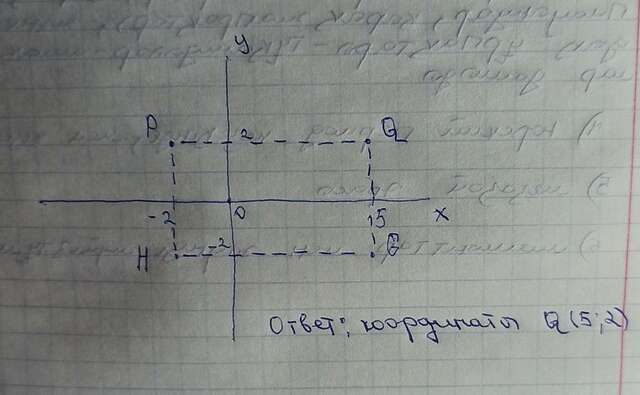 y
P 2 Q
-2 0 5 x
H -2
Ответ: координаты Q(5;2)